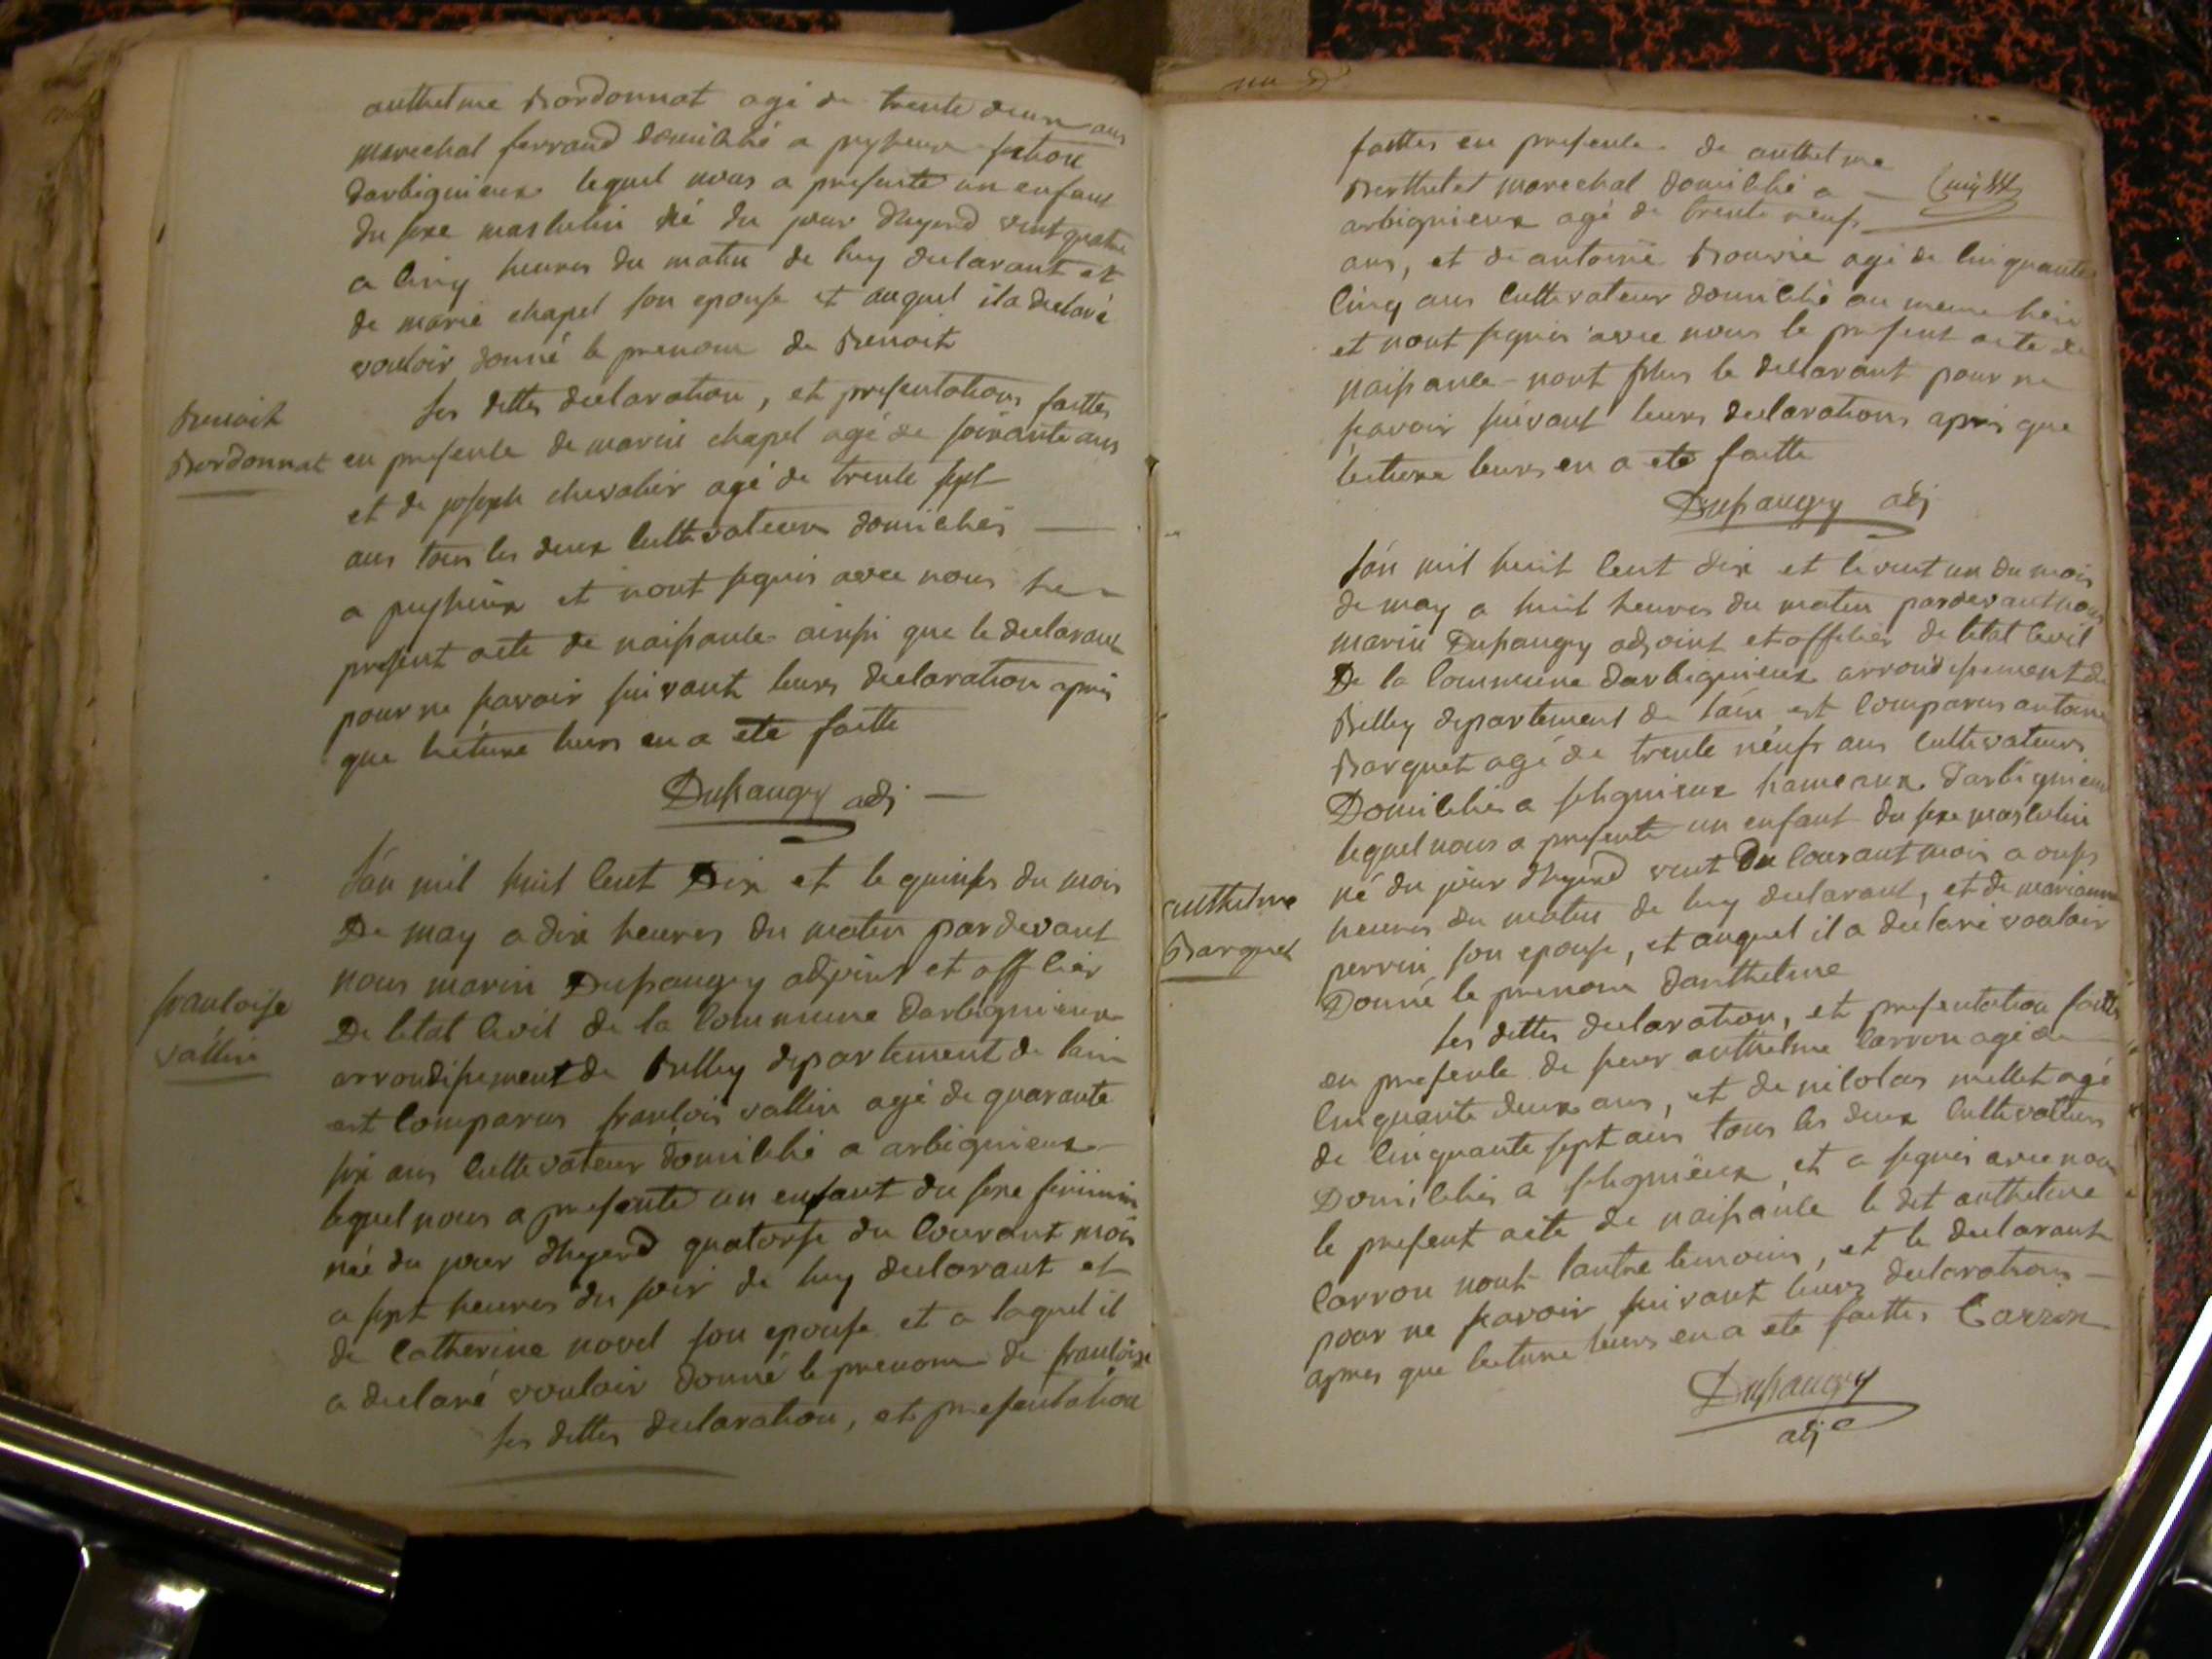 anthelme Bordonnat agé de trente deux ans
marechal ferrand domicilié a peyzieux section
darbignieux lequel nous a presenté un enfant
du sexe masculin né du jour dhyerd vint quatre
a cinq heures du matin de luy declarant et
de marie chapel son epouse et auquel il a declaré
vouloir donné le prenom de Benoit
Benoit
Bordonnat
les dittes declaration, et presentations faittes
en presence de marin chapel agé de soixante ans
et de joseph chevalier agé de trente sept
ans tous les deux cultivateurs domiciliés
a peyzieux et nont signés avec nous le
present acte de naissance ainssi que le declarant
pour ne savoir suivant leurs declaration après
que lecture leurs en a ete faitte
Dupaugey adj
Lán mil huit cent Dix et le quinse du mois
De may a dix heures du matin pardevant
nous marin Dupaugey adjoint et officier
De letat civil de la commune darbignieux
arrondissement de Belley departement de lain
est comparus francois vallin agé de quarante
six ans cultivateur domicilié a arbignieux
lequel nous a presenté un enfant du sexe feminin
née du jour dhyerd quatorse du courant mois
a sept heures du soir de luy declarant et
de catherine novel son epouse et a laquel il
a declaré vouloir donné le prenom de francoise
francoise
vallin
les dittes declaration, et presentation
faittes en presence de anthelme
Berthelet marechal domicilié a
arbignieux agé de trente neufs
ans, et de antoine Bouvié agé de cinquante
cinq ans cultivateur domicilié au meme lieu
et nont signés avec nous le present acte de
naissance nont plus le declarant pour ne
savoir suivant leurs declarations après que
lecture leurs en a ete faitte
Dupaugey adj
Lán mil huit cent dix et le vint un du mois
de may a huit heures du matin pardevant nous
marin Dupaugey adjoint et officier de letat civil
De la commune darbignieux arrondissement de
Belley departement de láin est comparus antoine
Barquet agé de trente neufs ans cultivateurs
Domicilié a slignieux hameaux darbignieux
lequel nous a presenté un enfant du sexe masculin
né du jour dhyerd vint Du courant mois a onse
heures du matin de luy declarant, et de marianne
perrin son epouse, et auquel il a declaré vouloir
Donné le prenom danthelme
anthelme
Barquet
les dittes declaration, et presentation faittes
en presence de sieur anthelme carron agé de
cinquante deux ans, et de nicolas mellet agé
de cinquante sept ans tous les deux cultivateurs
Domiciliés a slignieux et a signés avec nous
le present acte de naissance le dit anthelme
carron nont lautre temoins, et le declarant
pour ne savoir suivant leurs declarations
apres que lecture leurs en a ete faittes Carron
Dupaugey
adj